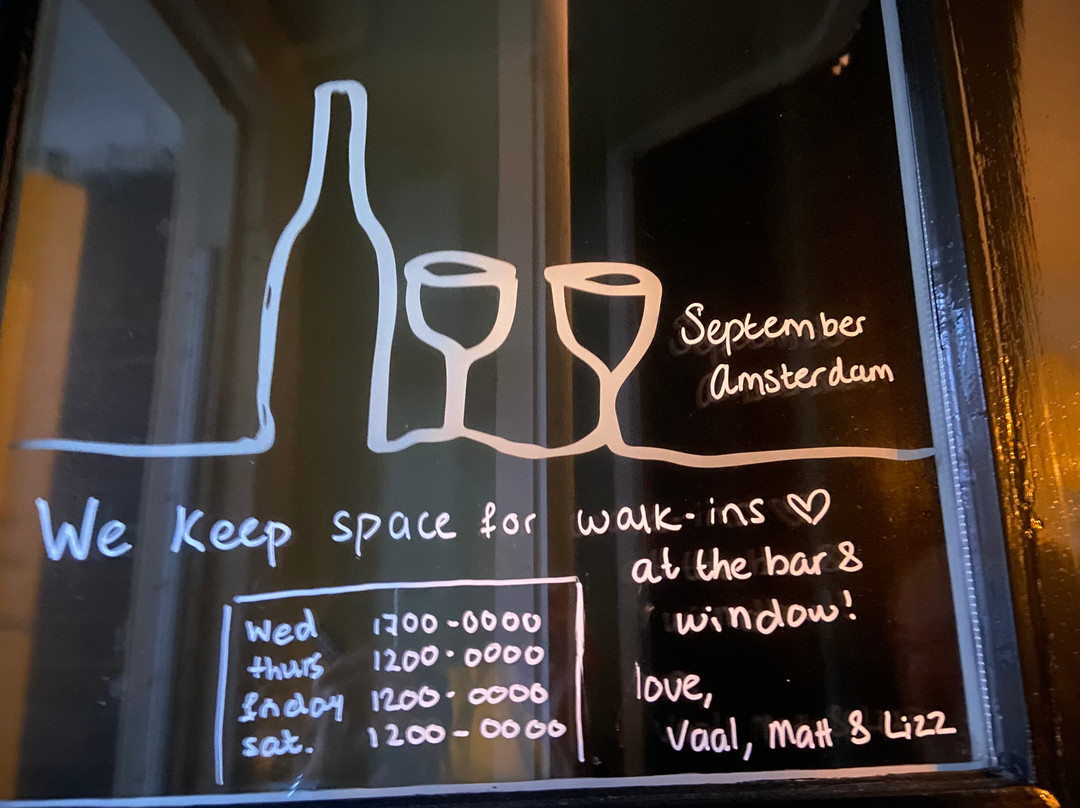 September
Amsterdam
We Keep space for walk-ins ♡
at the bar &
window!
Wed 1700-0000
thurs 1200-0000
friday 1200-0000
sat. 1200-0000
love,
Vaal, Matt & Lizz